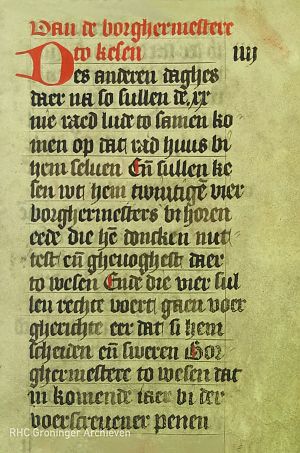 Van de borghermestere
to kesen IIIJ
Des anderen daghes
daer na so sullen de xx
nie raed lude to samen ko
men op dat rad huus bi
hem seluen Eñ sullen ke
sen wt hem twintigē vier
borghermesters bi horen
eede die hē doncken nut
test eñ ghenoghest daer
to wesen Ende die vier sul
len rechte voert gaen voer
gherichte eer dat si hem
scheiden eñ sweren Bor
ghermestere to wesen dat
in komende iaer bi der
voerscreuener penen
RHC Groninger Archieven